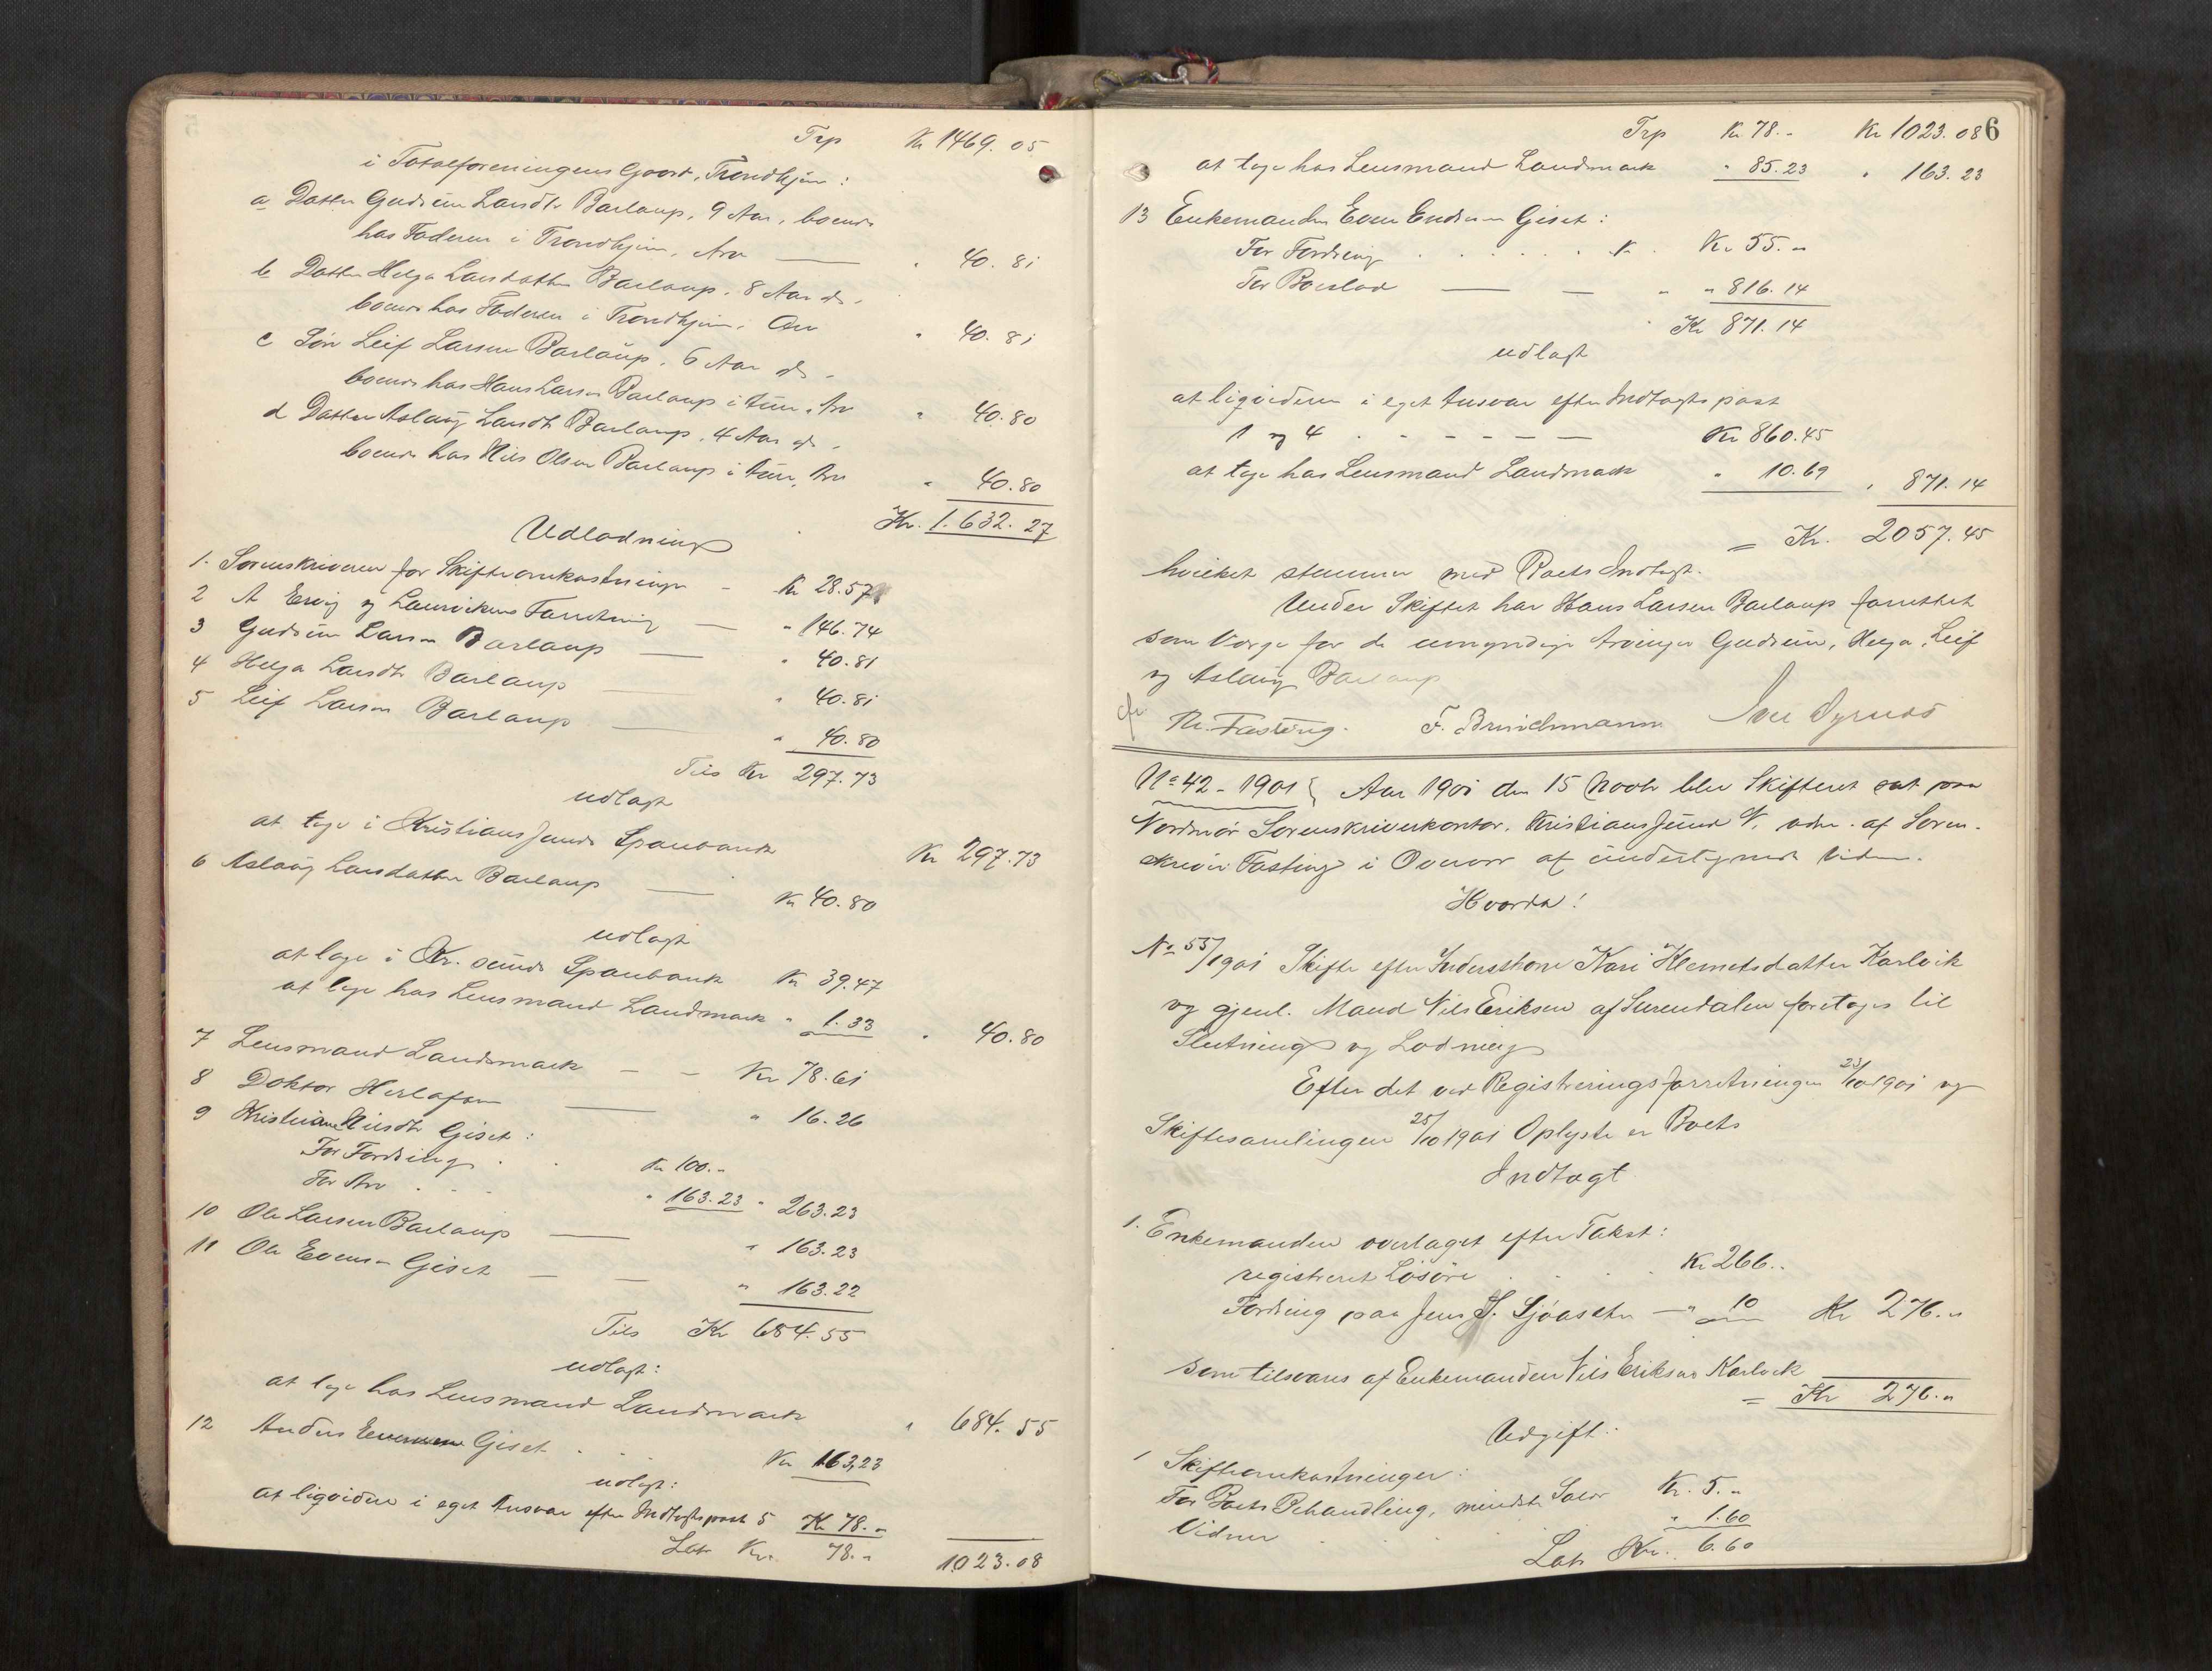 Trp Kr 1469.05
i Totalforeningens Gaard, Trondhjem:
a Datter Gudrun Larsdtr Barlaup, 9 Aar, boende
hos Faderen i Trondhjem, Arv — " 40.81
b Datter Helga Larsdatter Barlaup, 8 Aar do.
boende hos Faderen i Trondhjem. Arv " 40.81
c Søn Leif Larsen Barlaup, 6 Aar do.
boende hos Hans Larsen Barlaup i Aure, Arv " 40.80
d Datter Aslaug Larsdtr Barlaup, 4 Aar do.
boende hos Nils Olsen Barlaup i Aure, Arv " 40.80
Kr. 1.632.27
Udlodning
1. Sorenskriveren for Skifteomkostninger - Kr 28.57
2 A Ervig og Laurickens Forretning — " 146.74
3 Gudrun Larsen Barlaup — " 40.81
4 Helga Larsdtr Barlaup — " 40.81
5 Leif Larsen Barlaup — " 40.80
Tils Kr 297.73
udlagt
at tage i Kristiansunds Sparebank Kr 297.73
6 Aslaug Larsdatter Barlaup — Kr 40.80
udlagt
at tage i Kr.sunds Sparebank Kr 39.47
at tage hos Lensmand Landmark " 1.33 " 40.80
7 Lensmand Landmark - - Kr 78.61
8 Doktor — " 16.26
9 Kristiane Nilsdtr Giset:
For Fordring . . Kr 100.-
For Arv . . . " 163.23 " 263.23
10 Ole Larsen Barlaup — " 163.23
11 Ole Evensen Giset — — " 163.22
Tils Kr 684.55
udlagt:
at tage hos Lensmand Landmark " 684.55
12 Anders Evensen Giset . . Kr 163,23
udlagt:
at liqvidere i eget Ansvar efter Indtægtspost 5 Kr 78.-
Lat. Kr. 78.- 1023.08
6
Trp Kr. 78.- Kr 1023.08
at tage hos Lensmand Landmark " 85.23 " 163.23
13 Enkemanden Even Endresen Giset:
For Fordring . . . . . Kr. 55.-
For Boeslod — — " " 816.14
Kr 871.14
udlagt
at liqvidere i eget Ansvar efter Indtægtspost
1 og 4 . - - - - — Kr 860.45
at tage hos Lensmand Landmark " 10.69 " 871.14
= Kr. 2057.45
hvilket stemmer med Boets Indtægt.
Under Skiftet har Hans Larsen Barlaup forrettet
som Værge for de umyndige Arvinger Gudrun, Helga, Leif
og Aslaug Barlaup
Th. Fasting. F. Brinchmann Iver Dyrnes
No 42 - 1901 } Aar 1901 den 15 Novbr blev Skifteret sat paa
Nordmør Sorenskriverkontor, Kristianssund N. adm. af Soren-
skriver Fasting i Overvær af undertegnede Vidner.
Hvorda!
No 55/1901 Skifte efter Inderstkone Kari Klemetsdatter Karlvik
og gjenl. Mand Nils Eriksen af Surendalen foretoges til
Slutning og Lodning
Efter det ved Registreringsforretningen 23/10 1901 og
Skiftesamlingen 25/10 1901 Oplyste er Boets
Indtægt
1. Enkemanden overtaget efter Takst:
registreret Løsøre . . . . Kr 266..
Fordring paa Jens J. Sjøasæter — " 10 Kr 276.-
som tilsvares af Enkemanden Nils Eriksen Karlvik
= Kr 276.-
Udgift:
1 Skifteomkostninger:
For Boets Behandling, mindste Salær Kr. 5.-
Vidner . . . . " 1.60
Lat. Kr. 6.60